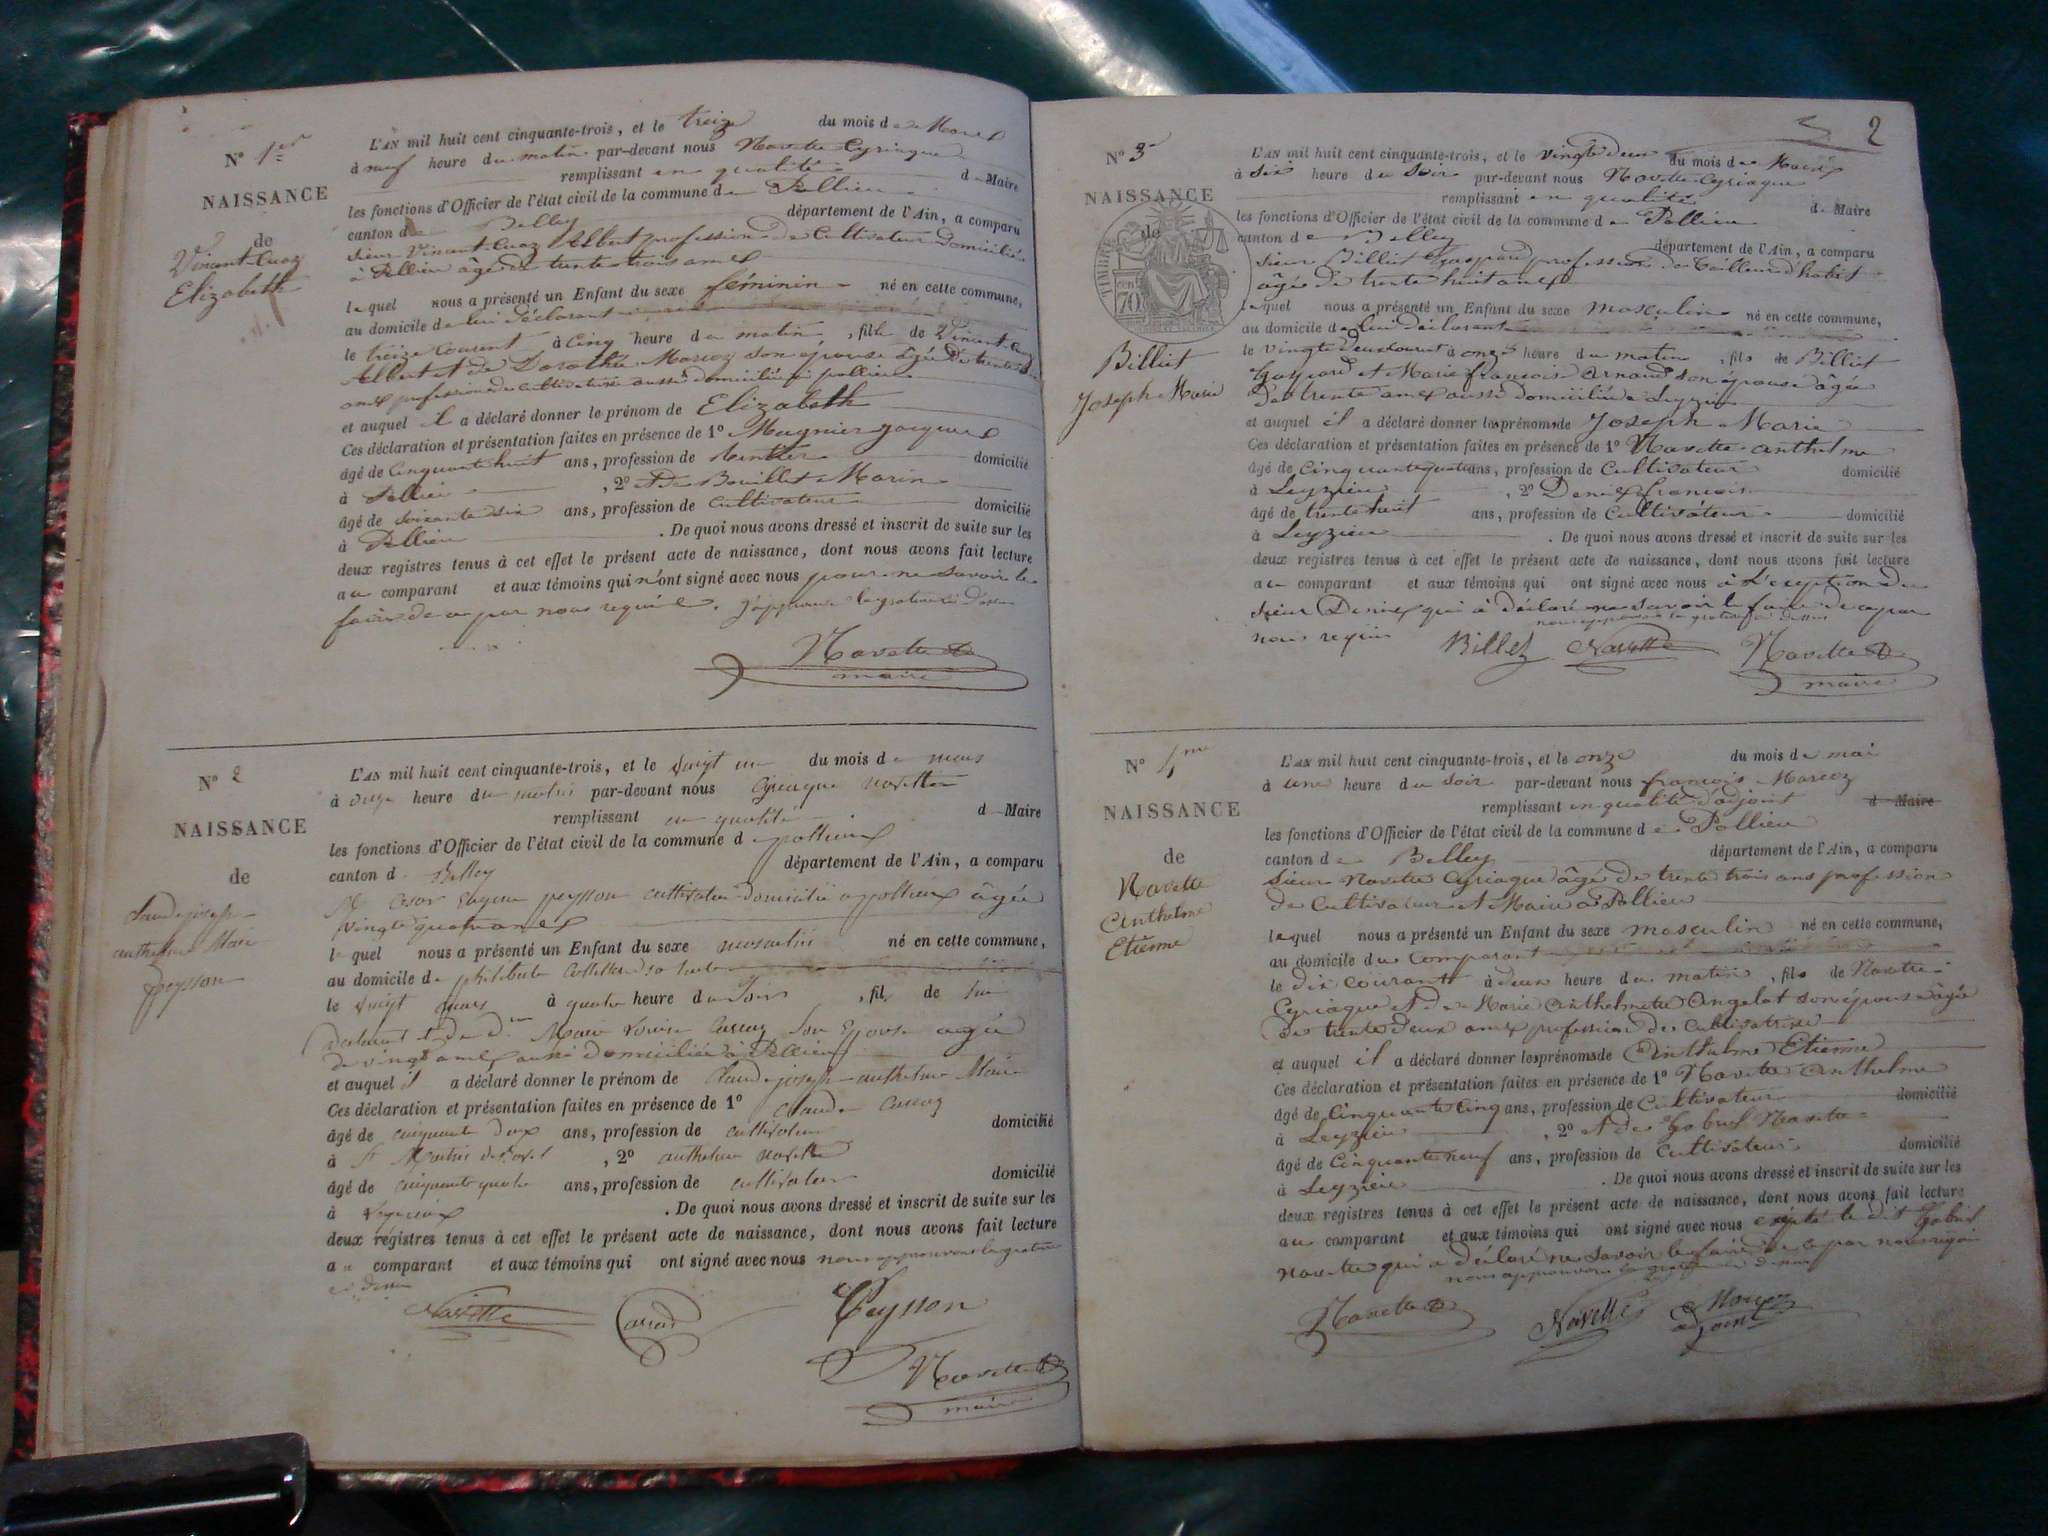 N° 1er
NAISSANCE
de
Vincent-Cuaz
Elizabeth
L'AN mil huit cent cinquante-trois, et le treize du mois de Mars
à neuf heure du matin par-devant nous Navette Cyriaque
remplissant en qualité de Maire
les fonctions d'Officier de l'état civil de la commune de Pollieu
canton de Belley département de l'Ain, a comparu
sieur Vincent-Cuaz Albert profession de Cultivateur domicilié
à Pollieu âgé de trente trois ans
lequel nous a présenté un Enfant du sexe féminin né en cette commune,
au domicile de lui déclarant
le treize courant à cinq heure du matin, fille de Vincent-Cuaz
Albert et de Dorothée Marcoz son épouse âgée de trente
ans profession de cultivatrice aussi domiciliée à pollieu
et auquel il a déclaré donner le prénom de Elizabeth
Ces déclaration et présentation faites en présence de 1° Mugnier Jacques
âgé de cinquante huit ans, profession de rentier domicilié
à Pollieu, 2° et de Bouillet Marin
âgé de soixante six ans, profession de cultivateur domicilié
à Pollieu. De quoi nous avons dressé et inscrit de suite sur les
deux registres tenus à cet effet le présent acte de naissance, dont nous avons fait lecture
au comparant et aux témoins qui n'ont signé avec nous pour ne savoir le
faire de ce par nous requis. J'approuve la grature ci dessus
Navette
maire
N° 2
NAISSANCE
de
claude joseph
anthelme Marie
peysson
L'AN mil huit cent cinquante-trois, et le vingt un du mois de mars
à onze heure du matin par-devant nous Cyriaque navette
remplissant en qualité de Maire
les fonctions d'Officier de l'état civil de la commune de pollieux
canton de Belley département de l'Ain, a comparu
peysson cultivateur domicilié a pollieux âgée
vingt quatre ans
le quel nous a présenté un Enfant du sexe masculin né en cette commune,
au domicile de philiberte
le vingt mars à quatre heure du soir, fils de lui
déclarant et de dme Marie Louise Carraz son Epouse agée
de vingt ans aussi domiciliée à Pollieu
et auquel il a déclaré donner le prénom de claude joseph anthelme Marie
Ces déclaration et présentation faites en présence de 1° claude carraz
âgé de cinquante deux ans, profession de cultivateur domicilié
à St Martin de Bavel, 2° anthelme navette
âgé de cinquante quatre ans, profession de cultivateur domicilié
à Leyzieux. De quoi nous avons dressé et inscrit de suite sur les
deux registres tenus à cet effet le présent acte de naissance, dont nous avons fait lecture
au comparant et aux témoins qui ont signé avec nous nous approuvons la grature
ci dessus
Navette Carraz Peysson
Navette
maire
2
N° 3
NAISSANCE
de
TIMBRE
70
Billiet
Joseph Marie
L'AN mil huit cent cinquante-trois, et le vingt deux du mois de Mars
à six heure du soir par-devant nous Navette Cyriaque
remplissant en qualité de Maire
les fonctions d'Officier de l'état civil de la commune de Pollieu
canton de Belley département de l'Ain, a comparu
sieur Billiet Gaspard profession de tailleur d'habit
âgé de trente huit ans
lequel nous a présenté un Enfant du sexe masculin né en cette commune,
au domicile de lui déclarant
le vingt deux courant à onze heure du matin, fils de Billiet
Gaspard et Marie françoise Arnaud son épouse âgée
de trente ans aussi domiciliée à Leyzieu
et auquel il a déclaré donner les prénoms de Joseph Marie
Ces déclaration et présentation faites en présence de 1° Navette anthelme
âgé de cinquante quatre ans, profession de cultivateur domicilié
à Leyzieu, 2° Denis françois
âgé de trente huit ans, profession de Cultivateur domicilié
à Leyzieu. De quoi nous avons dressé et inscrit de suite sur les
deux registres tenus à cet effet le présent acte de naissance, dont nous avons fait lecture
au comparant et aux témoins qui ont signé avec nous à l'exception du
sieur Denis qui a déclaré ne savoir le faire de ce par
nous requis nous approuvons la grature ci dessus
Billiet Navette Navette
maire
N° 4me
NAISSANCE
de
Navette
Anthelme
Etienne
L'AN mil huit cent cinquante-trois, et le onze du mois de mai
à une heure du soir par-devant nous françois Marcoz
remplissant en qualité d'adjoint d Maire
les fonctions d'Officier de l'état civil de la commune de Pollieu
canton de Belley département de l'Ain, a comparu
sieur Navette Cyriaque âgé de trente trois ans profession
de Cultivateur et Maire à Pollieu
lequel nous a présenté un Enfant du sexe masculin né en cette commune,
au domicile du comparant
le dix courant à deux heure du matin, fils de Navette
Cyriaque et de Marie Anthelmette Angelot son épouse âgée
de trente deux ans profession de cultivatrice
et auquel il a déclaré donner les prénoms de Anthelme Etienne
Ces déclaration et présentation faites en présence de 1° Navette Anthelme
âgé de cinquante cinq ans, profession de Cultivateur domicilié
à Leyzieu, 2° et de Gabriel Navette
âgé de cinquante neuf ans, profession de cultivateur domicilié
à Leyzieu. De quoi nous avons dressé et inscrit de suite sur les
deux registres tenus à cet effet le présent acte de naissance, dont nous avons fait lecture
au comparant et aux témoins qui ont signé avec nous excepté le dit Gabriel
navette qui a déclaré ne savoir le faire de ce par nous requis
nous approuvons la grature ci dessus
Navette Navette Marcoz
adjoint